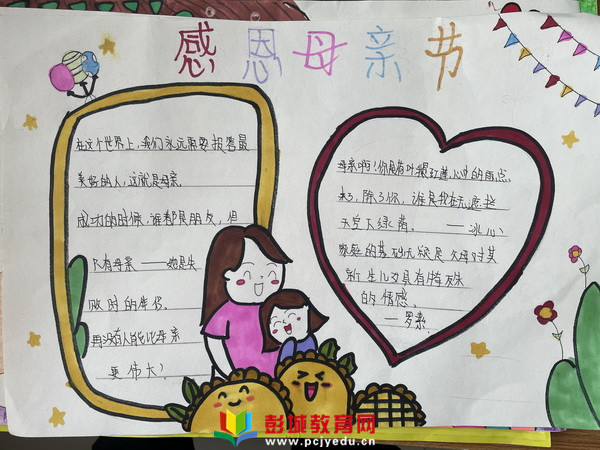 感恩母亲节
在这个世界上,我们永远需要报答最
美好的人,这就是母亲.
成功的时候,谁都是朋友,但
只有母亲——她是失
败时的伴侣.
再没有人能比母亲
更伟大!
母亲啊!你是荷叶,我是红莲,心中的雨点
来了,除了你,谁是我在无遮拦
天空下绿荫. ——冰心
家庭的基础无疑是父母对其
新生儿具有特殊
的情感.
——罗素.
彭城教育网
www.pcjyedu.cn